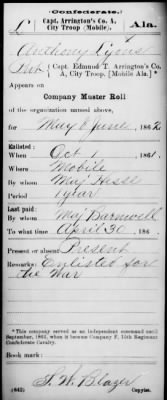 (Confederate.)
L
Capt. Arrington's Co. A,
City Troop (Mobile).
Ala.
Anthony Lyons
Pvt, Capt. Edmund T. Arrington's Co.
A, City Troop. [Mobile Ala.]
Appears on
Company Muster Roll
of the organization named above,
for May & June, 1862
Enlisted:
When Oct 1, 1861.
Where Mobile
By whom Maj Hessee
Period 1 year
Last paid:
By whom Maj Barnwell
To what time April 30, 186
Present or absent Present
Remarks: Enlisted for
the War
*This company served as an independent command until
September, 1863, when it became Company F, 15th Regiment
Confederate Cavalry.
Book mark:
(642)
S. W. Blazer
Copyist.